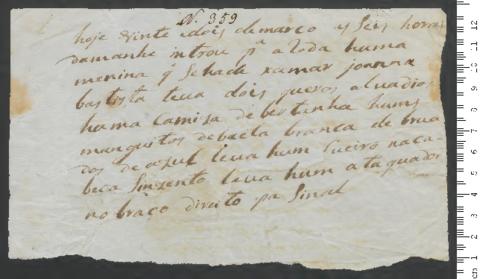 N. 359
hoje vinte idois demarco as seis horas
damanhe introu pª aRoda huma
menina q̃ Sehade xamar joanna
batista leva dois queros aluadios
huma Camiza de bertanha huns
manguitos debaeta branca de brua
dos de azul leva hum Cueiro na ca
beca Sinzento leva hum ataquador
no braço direito pa Sinal